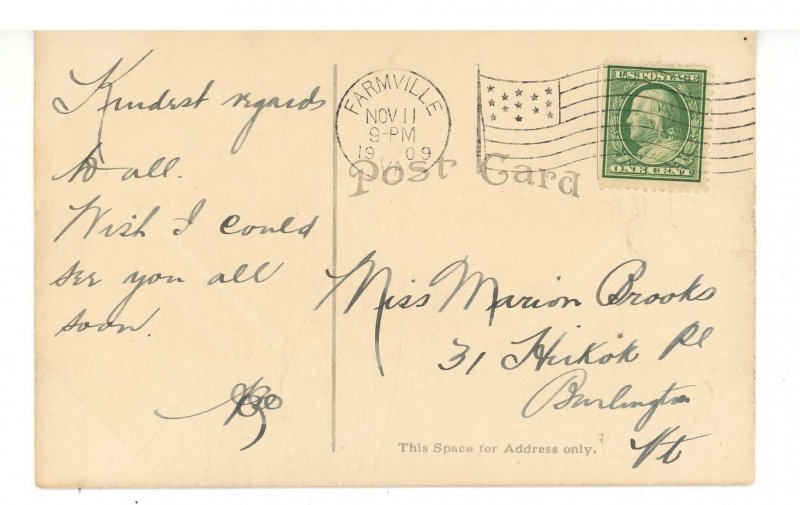 Kindest regards
to all.
Wish I could
see you all
soon.
FARMVILLE
NOV 11
9-PM
1909
VA
U.S. POSTAGE
ONE CENT
Post Card
Miss Marion Brooks
31 Hickok Pl
Burlington
Vt
This Space for Address only.